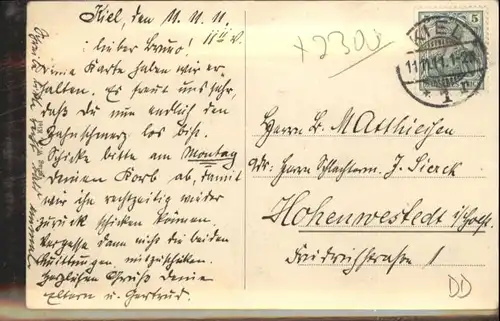 Kiel, den 11. 11. 11.
! lieber Bruno!
Deine Karte haben wir er-
halten. Es freut uns sehr,
daß du nun endlich den
Zahnschmerz los bist.
Schicke bitte am Montag
Deinen Korb ab, damit
wir ihn rechtzeitig wieder
zurück schicken können.
Vergesse dann nicht die beiden
Quittungen mitzuschicken.
Herzlichen Gruß Deine
Eltern u. Gertrud.
x 230
5
KIEL
11.11.11. 1-2N
* 1
Herrn B. Matthiessen
Adr: Herrn Schlachterm. J. Sierck
Hohenwestedt i/Holst.
Friedrichstraße 1
DD